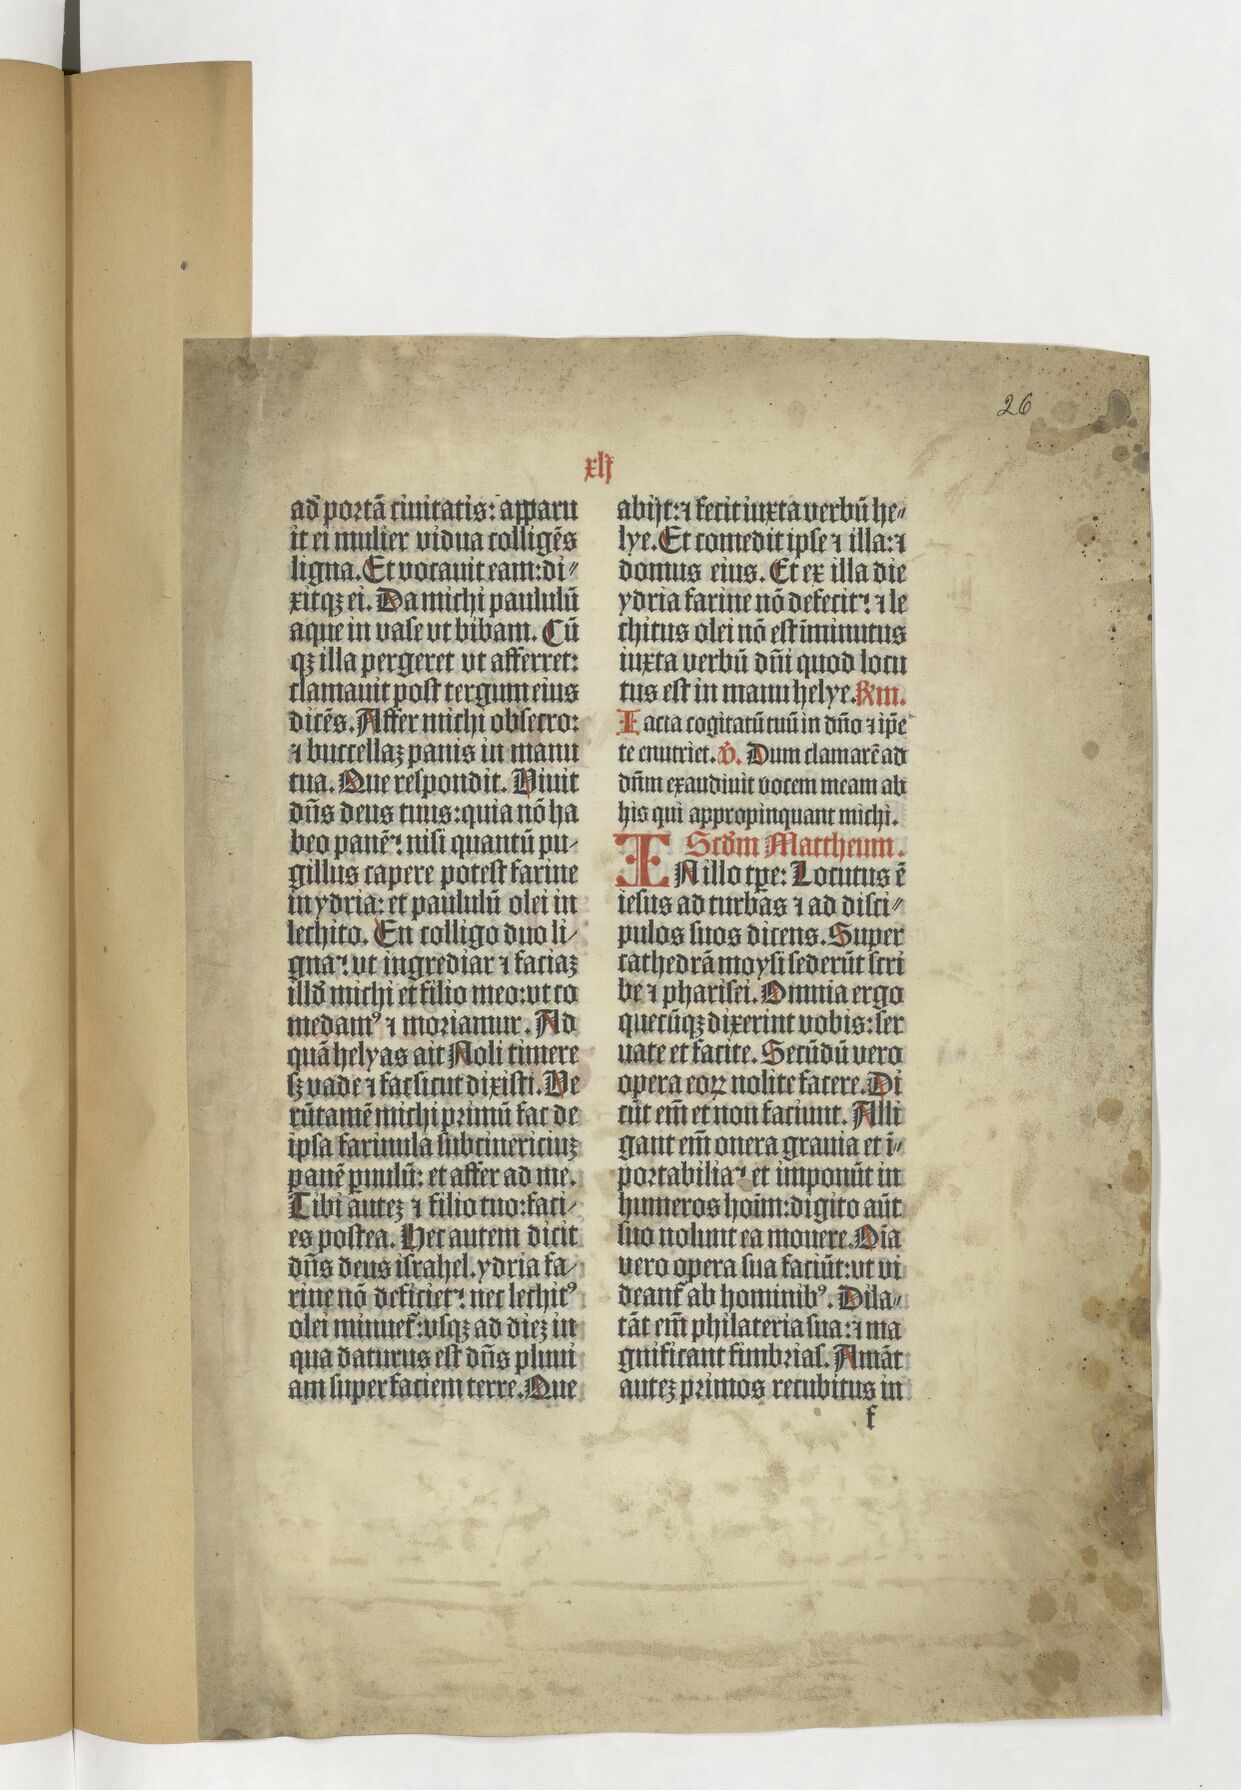 26
xlj
ad portā ciuitatis: apparu
it ei mulier vidua colligēs
ligna. Et vocauit eam: di⸗
xitqꝫ ei. Da michi paululū
aque in vase vt bibam. Cū
qꝫ illa pergeret vt afferret:
clamauit post tergum eius
dicēs. Affer michi obsecro:
⁊ buccellaꝫ panis in manu
tua. Que respondit. Viuit
dn̄s deus tuus: quia nō ha
beo panē: nisi quantū pu⸗
gillus capere potest farine
in ydria: et paululū olei in
lechito. En colligo duo li⸗
gna: vt ingrediar ⁊ faciaꝫ
illḋ michi et filio meo: vt co
medamꝰ ⁊ moriamur. Ad
quā helyas ait Noli timere
sꝫ vade ⁊ fac sicut dixisti. Ve
rūtamē michi primū fac de
ipsa farinula subcinericiuꝫ
panē ꝑuulū: et affer ad me.
Tibi auteꝫ ⁊ filio tuo: faci⸗
es postea. Hec autem dicit
dn̄s deus israhel. ydria fa⸗
rine nō deficiet: nec lechitꝰ
olei minuet᷑: vsqꝫ ad dieꝫ in
qua daturus est dn̄s pluui
am super faciem terre. Que
abijt: ⁊ fecit iuxta verbū he⸗
lye. Et comedit ipse ⁊ illa: ⁊
domus eius. Et ex illa die
ydria farine nō defecit: ⁊ le
chitus olei nō est īminutus
iuxta verbū dn̄i quod locu
tus est in manu helye. Rm.
Iacta cogitatū tuū in dn̄o ⁊ ip̄e
te enutriet. v̇. Dum clamarē ad
dn̄m exaudiuit vocem meam ab
his qui appropinquant michi.
Scḋm Mattheum.
IN illo tꝑe: Locutus ē
iesus ad turbas ⁊ ad disci⸗
pulos suos dicens. Super
cathedrā moysi sederūt scri
be ⁊ pharisei. Omnia ergo
quecūqꝫ dixerint vobis: ser
uate et facite. Secūdū vero
opera eoꝝ nolite facere. Di
cūt em̄ et non faciunt. Alli
gant em̄ onera grauia et ī⸗
portabilia: et imponūt in
humeros hoīm: digito aūt
suo nolunt ea mouere. Oīa
vero opera sua faciūt: vt vi
deant᷑ ab hominibꝰ. Dila⸗
tāt em̄ philateria sua: ⁊ ma
gnificant fimbrias. Amāt
auteꝫ primos recubitus in
f